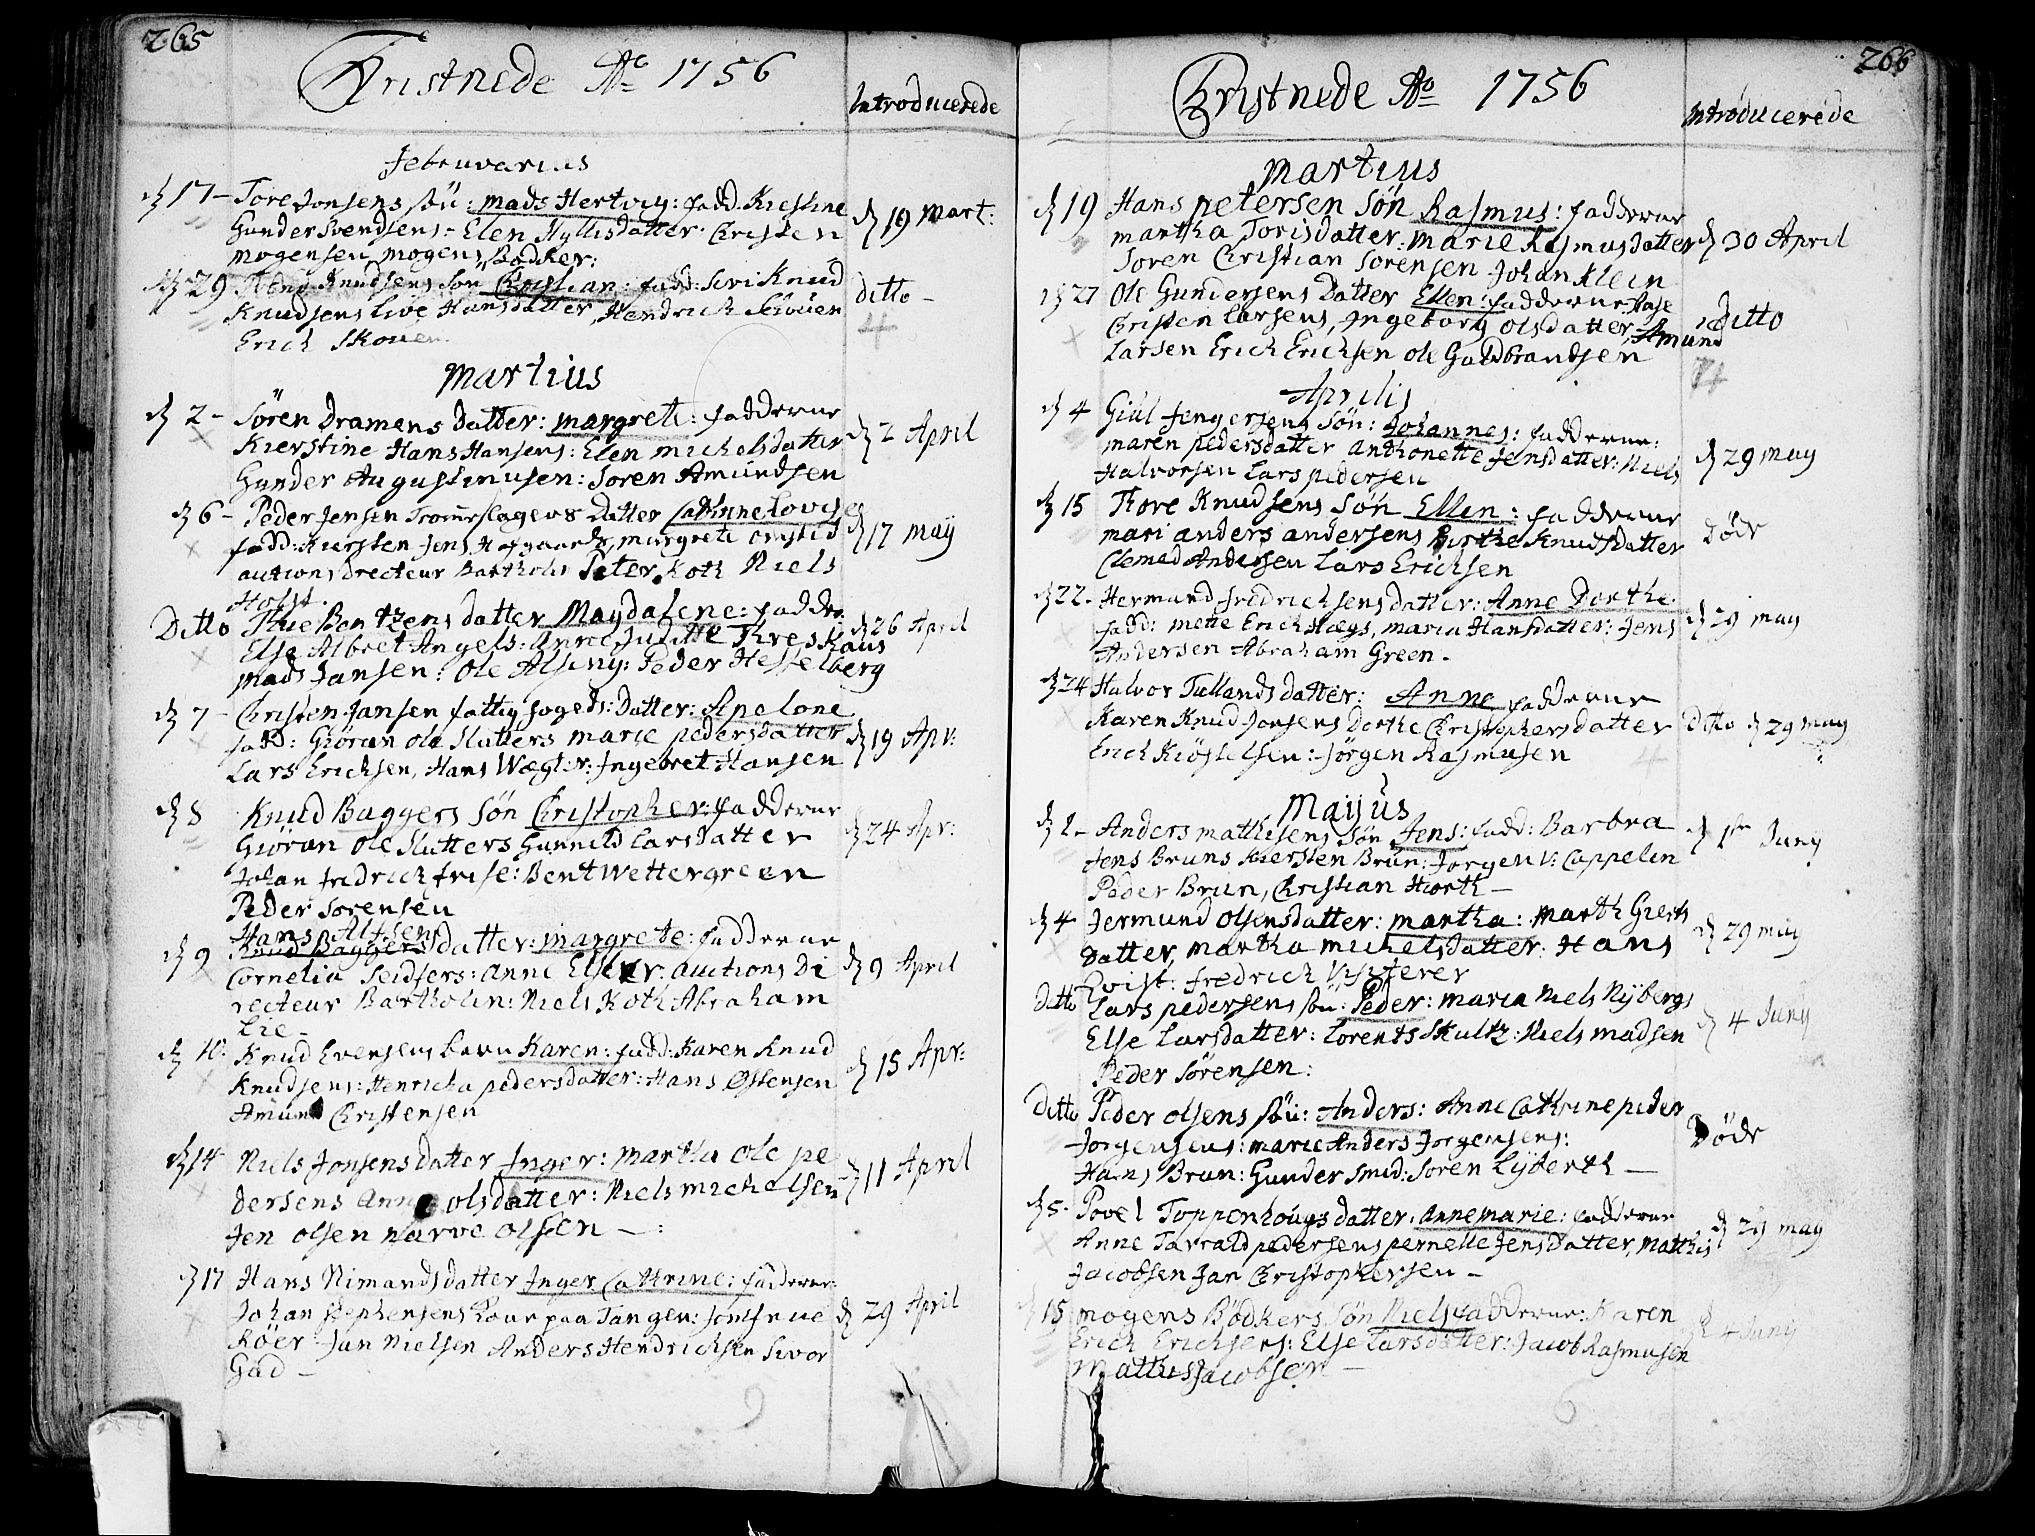 265
Christnede Ao 1756
Introducerede
Februarius
d 17 - Tore Jonsens søn: Mads Hertvig: fadd: Kirstine
Gunder Svendsens - Elen Hyllisdatter: Christen
Mogensen Mogens Bødker:
d 19 Mart:
d 29 Knudsens søn Christian: fadd: Siri Knud
Knudsens Live Hansdatter, Hendrich Skouen
Erich Skouen.
Ditto -
4
Martius
d 2 - Søren Dramens Datter: Margrete: fadderne
Kierstine Hans Hansens: Elen Michelsdatter
Gunder Augustinusen: Soren Amundsen
d 2 April
d 6 - Peder Jensen Tromslagers Datter Cathrine Lovise
fadd: Kiersten Jens margrete
auctions directeur Bartholin Peter Koth Niels
Holst.
d 17 may
Ditto Thue Bentzens datter Magdalene: fadder
Else Albret Angels: Anne Juditte Threskaus
Mads Jansen: Ole Alseng: Peder Hesselberg
d 26 April
d 7 - Christen Jansen fattig fogeds: Datter: Apelone
fadd: Giøran Ole Slutters Marie pedersdatter
Lars Erichsen, Hans Wægter: Ingebret Hansen
d 19 Apr:
d 8 Knud Baggers søn Christopher: fadderne
Giøran Ole Slutters Gunnild Larsdatter
Johan fredrich frise: Bent Wettergreen
Peder Sorensen
d 24 Apr:
Hans Alfsens
d 9 Knud Baggers datter: margrete: fadderne
Cornelia Seidsers: anne Elser: auctions Di
recteur Bartholin: Niels Koth: Abraham
Lie -
d 9 April
d 10. Knud Evensens barn Karen: fadd: Karen Knud
Knudsens: Henricha pedersdatter: Hans Østensen
Amund Christensen
d 15 Apr:
d 14 Niels Jonsens datter Inger: Martha Ole pe
dersens Anne olsdatter: Niels Michelsen
Jen olsen Narve olsen - :
d 11 April
d 17 Hans Nimands datter Inger Cathrine: fadderne:
Johan Stephensens Kone paa Tangen: Jomfrue
Röer Jan Nielsen Anders Hendrichsen Sivor
Gad -
d 29 April
9
266
Christnede Ao 1756
Introducerede
Martius
d 19 Hans petersen søn Rasmus: fadderne
martha Torisdatter: Marie Rasmusdatter
Soren Christian Sorensen Johan Klein
d 30 April
d 27 Ole Gundersens Datter Ellen: fadderne Aase
Christen Larsens, Ingeborg olsdatter, Amund
Larsen Erich Erichsen ole Guldbrandsen
Ditto
Aprilis
d 4 Giul Jengersens søn: Johannes: fadderne:
maren pedersdatter anthonette Jensdatter: Niels
Halvorsen Lars pedersen
d 29 may
d 15 Thore Knudsens Søn Ellen: fadderne
mari anders andersens Birthe Knudsdatter
Clemed Andersen Lars Ericksen
Döde
d 22. Hermand fredrichsens datter: Anne Dorthe.
fadd: mette Erich Hægs, maria Hansdatter: Jens
Andersen Abraham Green.
d 29 may
d 24 Halvor Tullands datter: Anne fadderne
Karen Knud Jonsens Dorthe Christophersdatter
Erich Kiøstelsen: Jörgen Rasmusen
Ditto d 29 may
Majus
d 2 - Anders matthisens Søn Jens: fadd: Barbra
Jens Bruns Kiersten Brun: Jorgen v: Cappelen
Peder Brun, Christian Hiorth -
d 1ste Juny
d 4 Jermund Olsens datter: martha: Marth Gierts
Datter, martha michelsdatter: Hans
Qvist: fredrich
d 29 may
Ditto Lars pedersens søn: Peder: Maria Niels Nybergs
Else Larsdatter: Lorents Skultz: Niels Madsen
Peder Sörensen:
d 4 Juny
Ditto Peder olsens søn: Anders: Anne Cathrine peder
Jorgensens: marie Anders Jorgensens:
Hans Brun: Gunder Smed: Soren Lyderth -
Döde
d 5. Povel Toppenhougs datter. Anne marie: fadderne
Anne Tarrald pedersens pernelle Jensdatter, Mathis
Jacobsen Jan Christophersen -
d 29 may
d 15 mogens Bødkers Søn Niels fadderne: Karen
Erich Erichsens: Else Larsdatter: Jacob Rasmusen
Mathis Jacobsen -
d 4 Juny
6